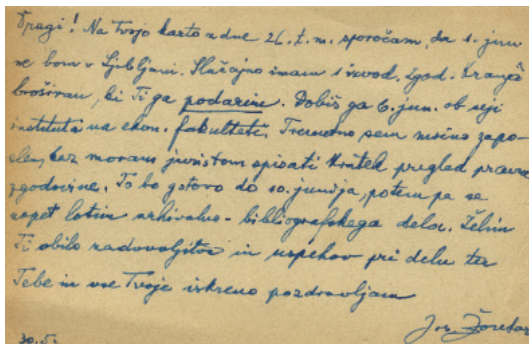 Dragi! Na Tvojo karto z dne 26. t. m. sporočam, da 1. jun.
ne bom v Ljubljani. Slučajno imam 1 izvod. Zgod. Kranja
broširan, ki Ti ga podarim. Dobiš ga 6. jun. ob seji
instituta na ekon. fakulteti. Trenutno sem močno zapo-
slen, ker moram juristom spisati kratek pregled pravne
zgodovine. To bo gotovo do 10. junija, potem pa se
zopet lotim arhivalno-bibliografskega dela. Želim
Ti obilo zadovoljstva in uspehov pri delu ter
Tebe in vse Tvoje iskreno pozdravljam
30.5. Jos. Žontar